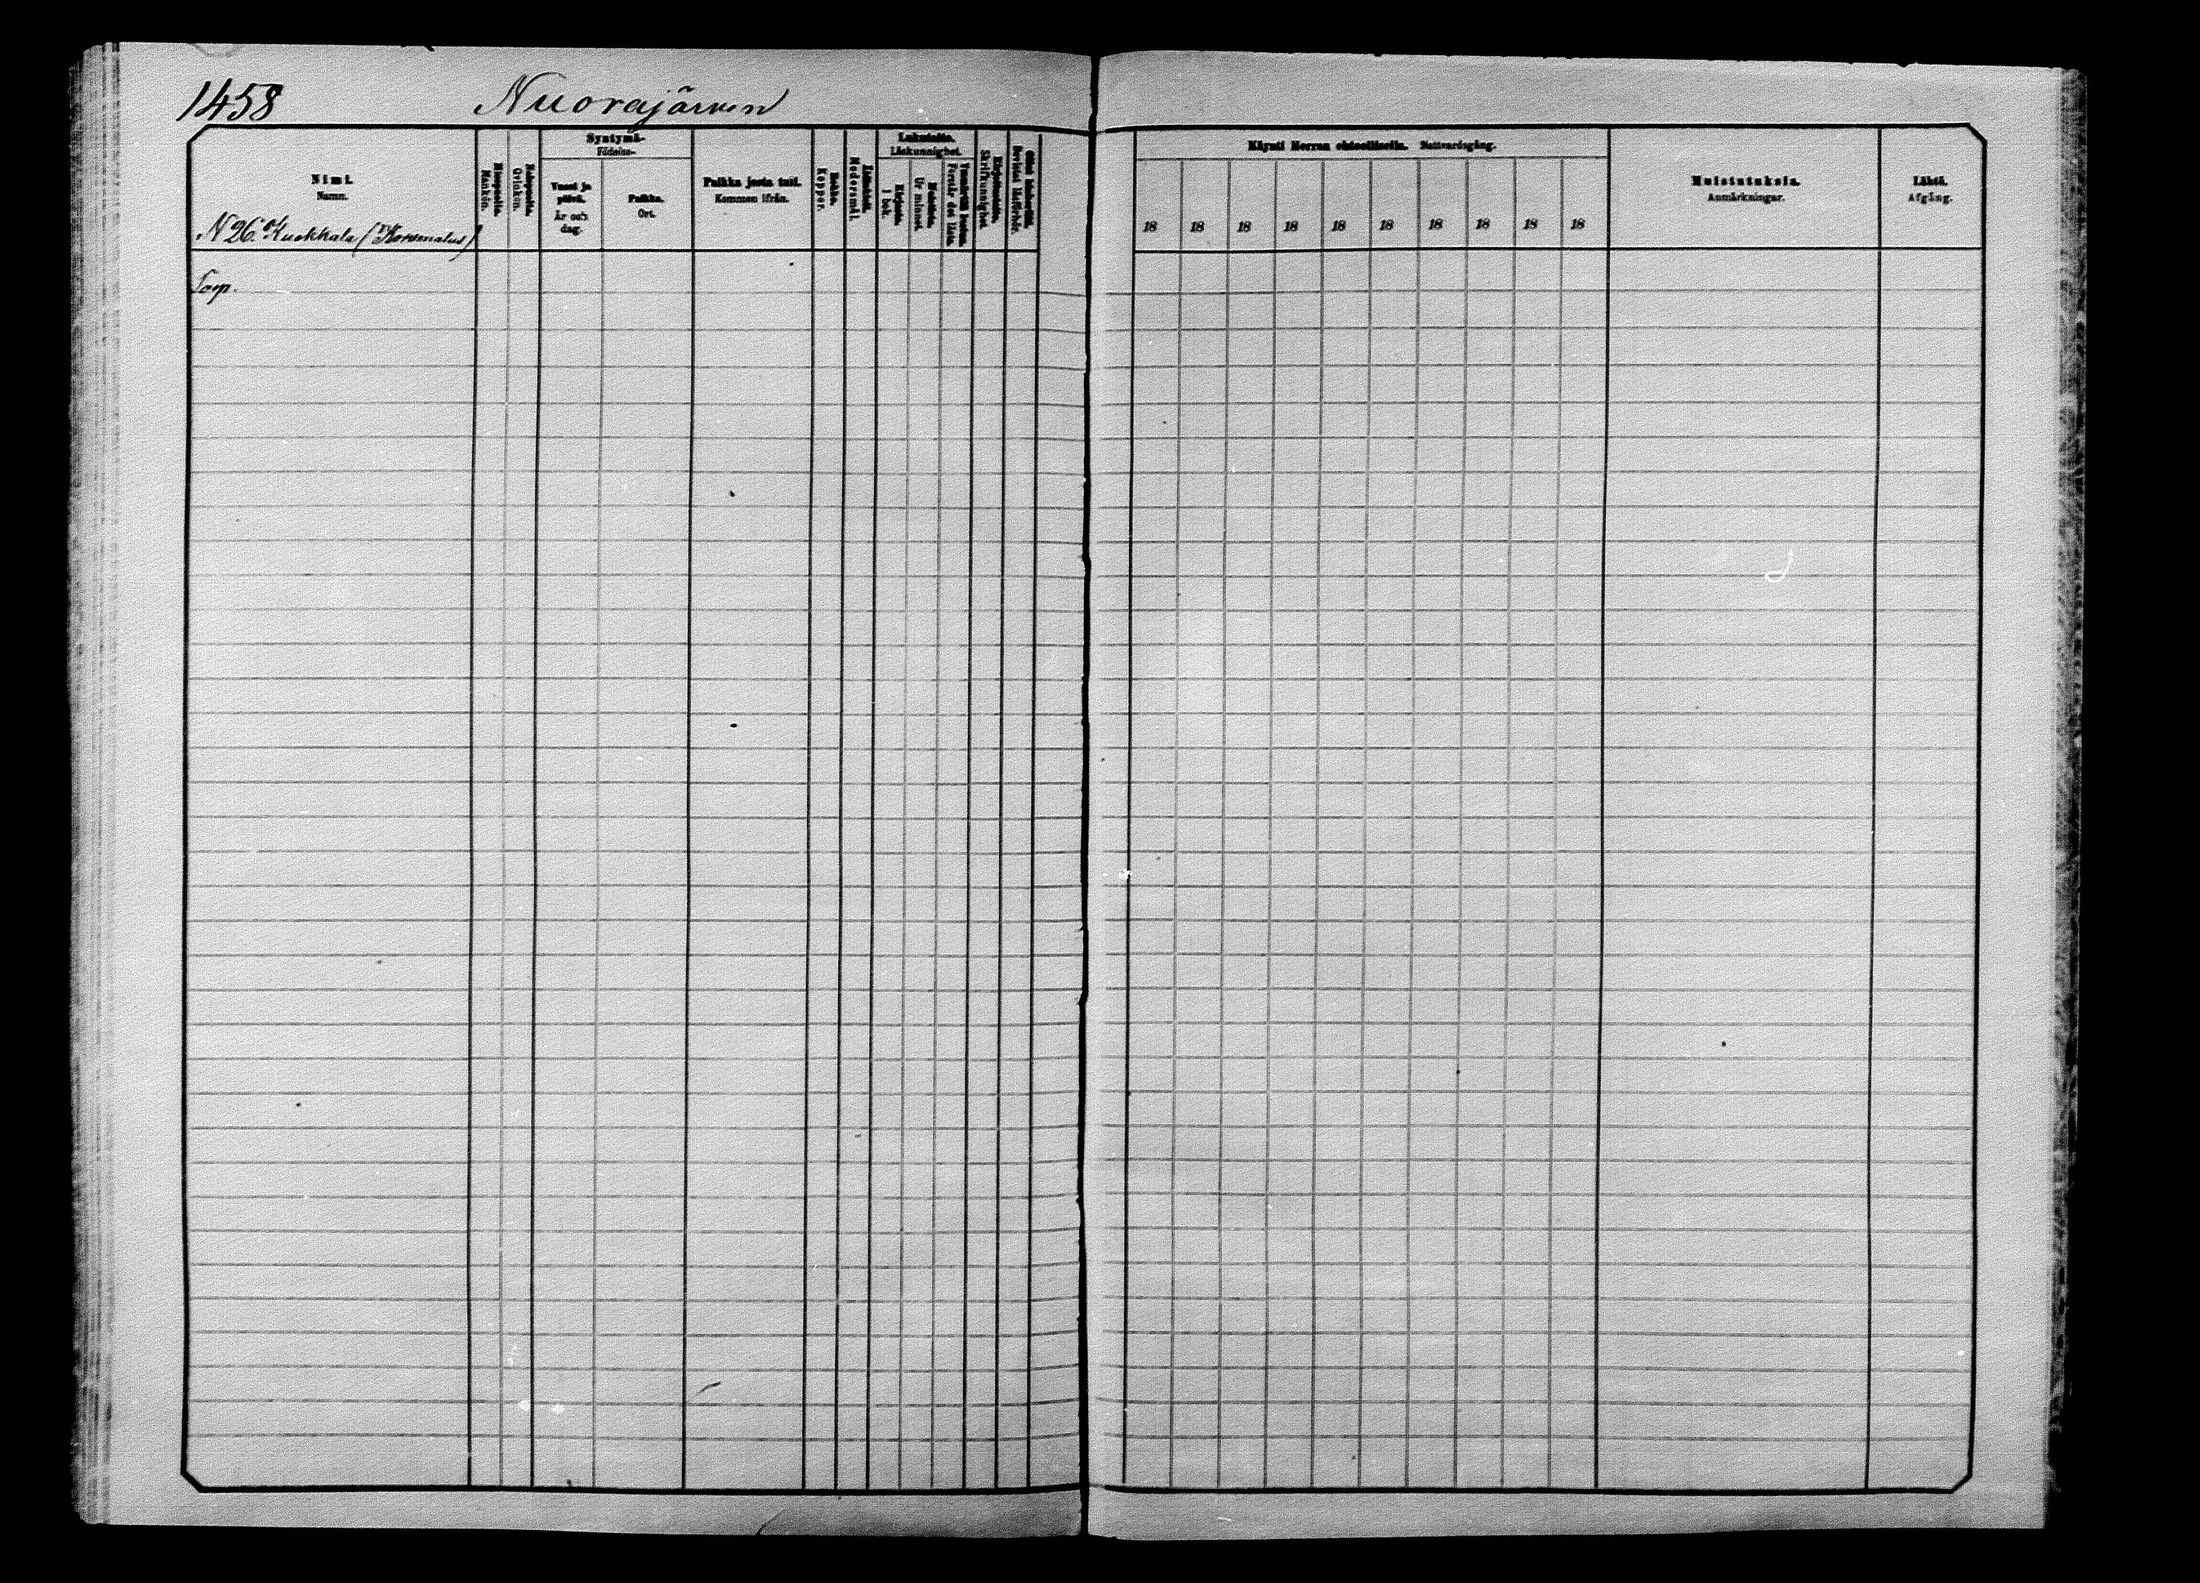 1458 Nuorajärven
Nimi.
Namn.
N 26. Kuokkala (Korsmalus)
Miespuolia.
Mankön.
Vaimopuolia.
Qvinkön.
Syntymä-
Födelse-
Vuosi ja
päivä.
År och
dag.
Paikka.
Ort.
Paikka josta tuli.
Kommen ifrån.
Rokko.
Koppor.
Äidinkieli.
Modersmål.
Lukutaito.
Läskunnighet.
Kirjasta.
I bok.
Ulkoa.
Ur minnet.
Förstår det lästa.
Kirjoitustaito.
Skrifkunnighet.
Bevistat läsförhör.
Käynti Herran ehtoollisella. Nattvardsgång.
18 18 18 18 18 18 18 18 18 18
Muistutuksia.
Anmärkningar.
Lähtö.
Afgång.